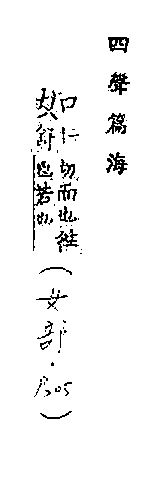 四聲篇海
如仁舒切而也往
也若也(女部.